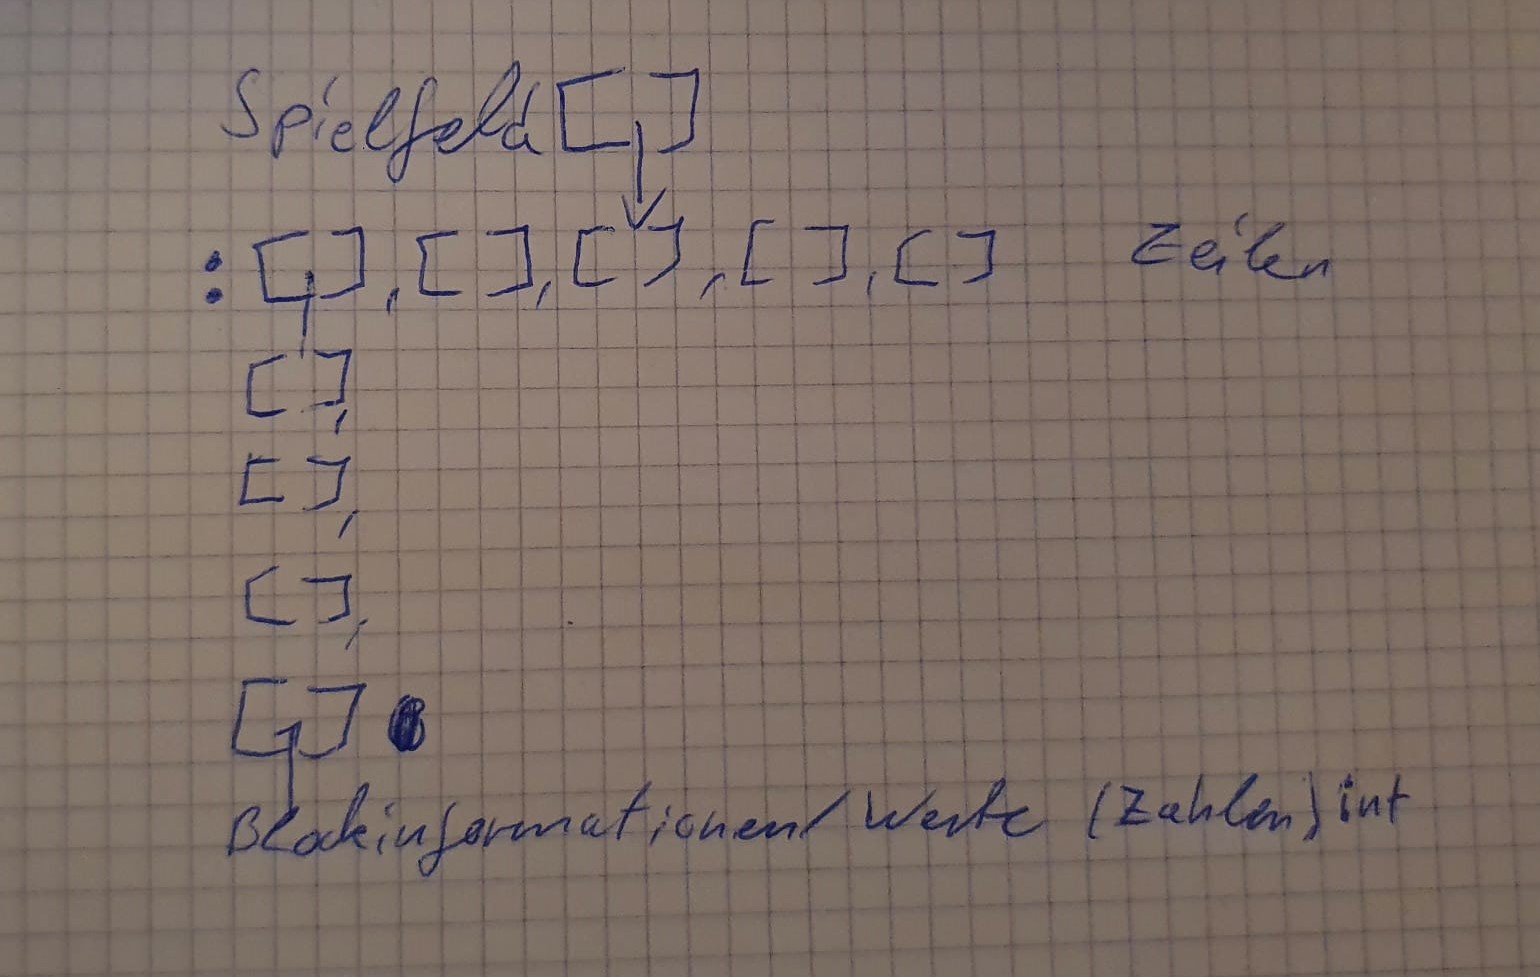 Spielfeld [ ]
: [ ], [ ], [ ], [ ], [ ] Zeilen
[ ],
[ ],
[ ],
[ ]
Blockinformationen/Werte (Zahlen) int